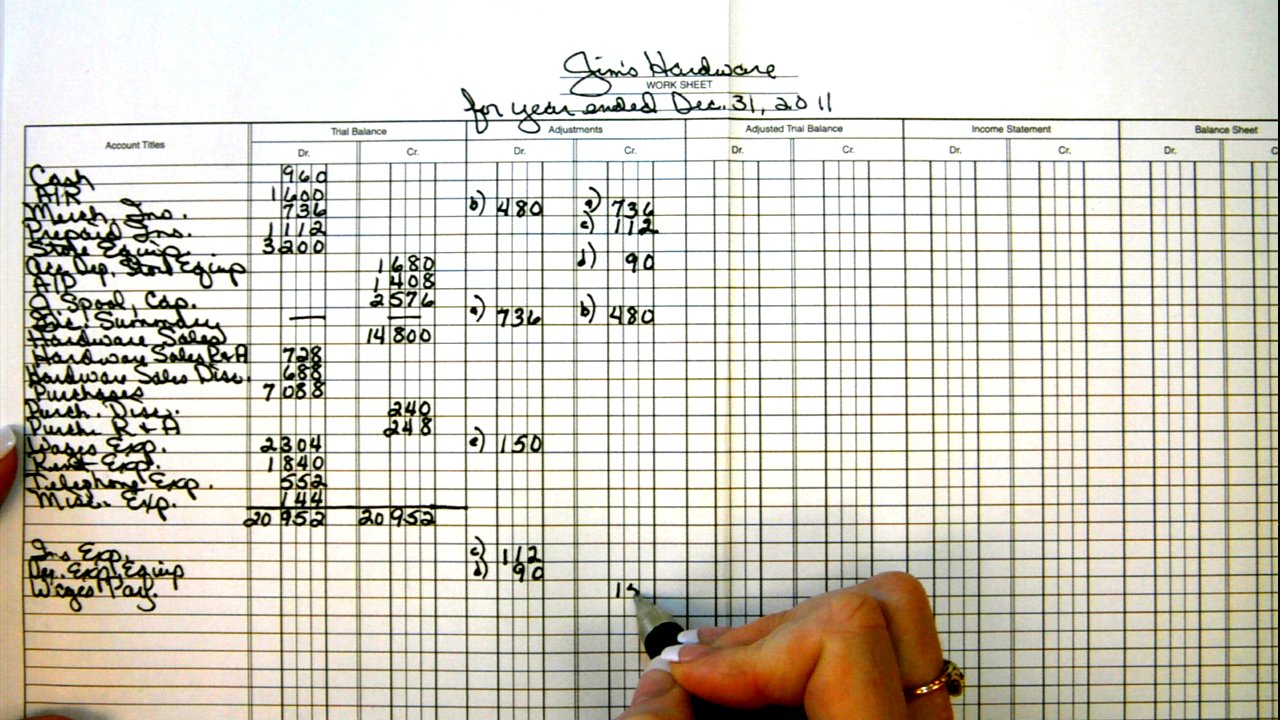 Jim's Hardware
WORK SHEET
for year ended Dec. 31, 2011
Account Titles Trial Balance Adjustments Adjusted Trial Balance Income Statement Balance Sheet
Dr. Cr. Dr. Cr. Dr. Cr. Dr. Cr. Dr. C
Cash 960
A/R 1600
Merch. Ins. 736 b) 480 a) 736
Prepaid Ins. 1112 c) 112
Store Equip. 3200
Acc. Dep. Store Equip 1680 d) 90
A/P 1408
J. Spool, Cap. 2576
Inc. Summary — — a) 736 b) 480
Hardware Sales 14800
Hardware Sales R+A 728
Hardware Sales Disc. 688
Purchases 7088
Purch. Disc. 240
Purch. R + A 248
Wages Exp. 2304 e) 150
Rent Exp. 1840
Telephone Exp. 552
Misc. Exp. 144
20952 20952
Ins Exp. c) 112
Dep. Exp. Equip d) 90
Wages Pay.